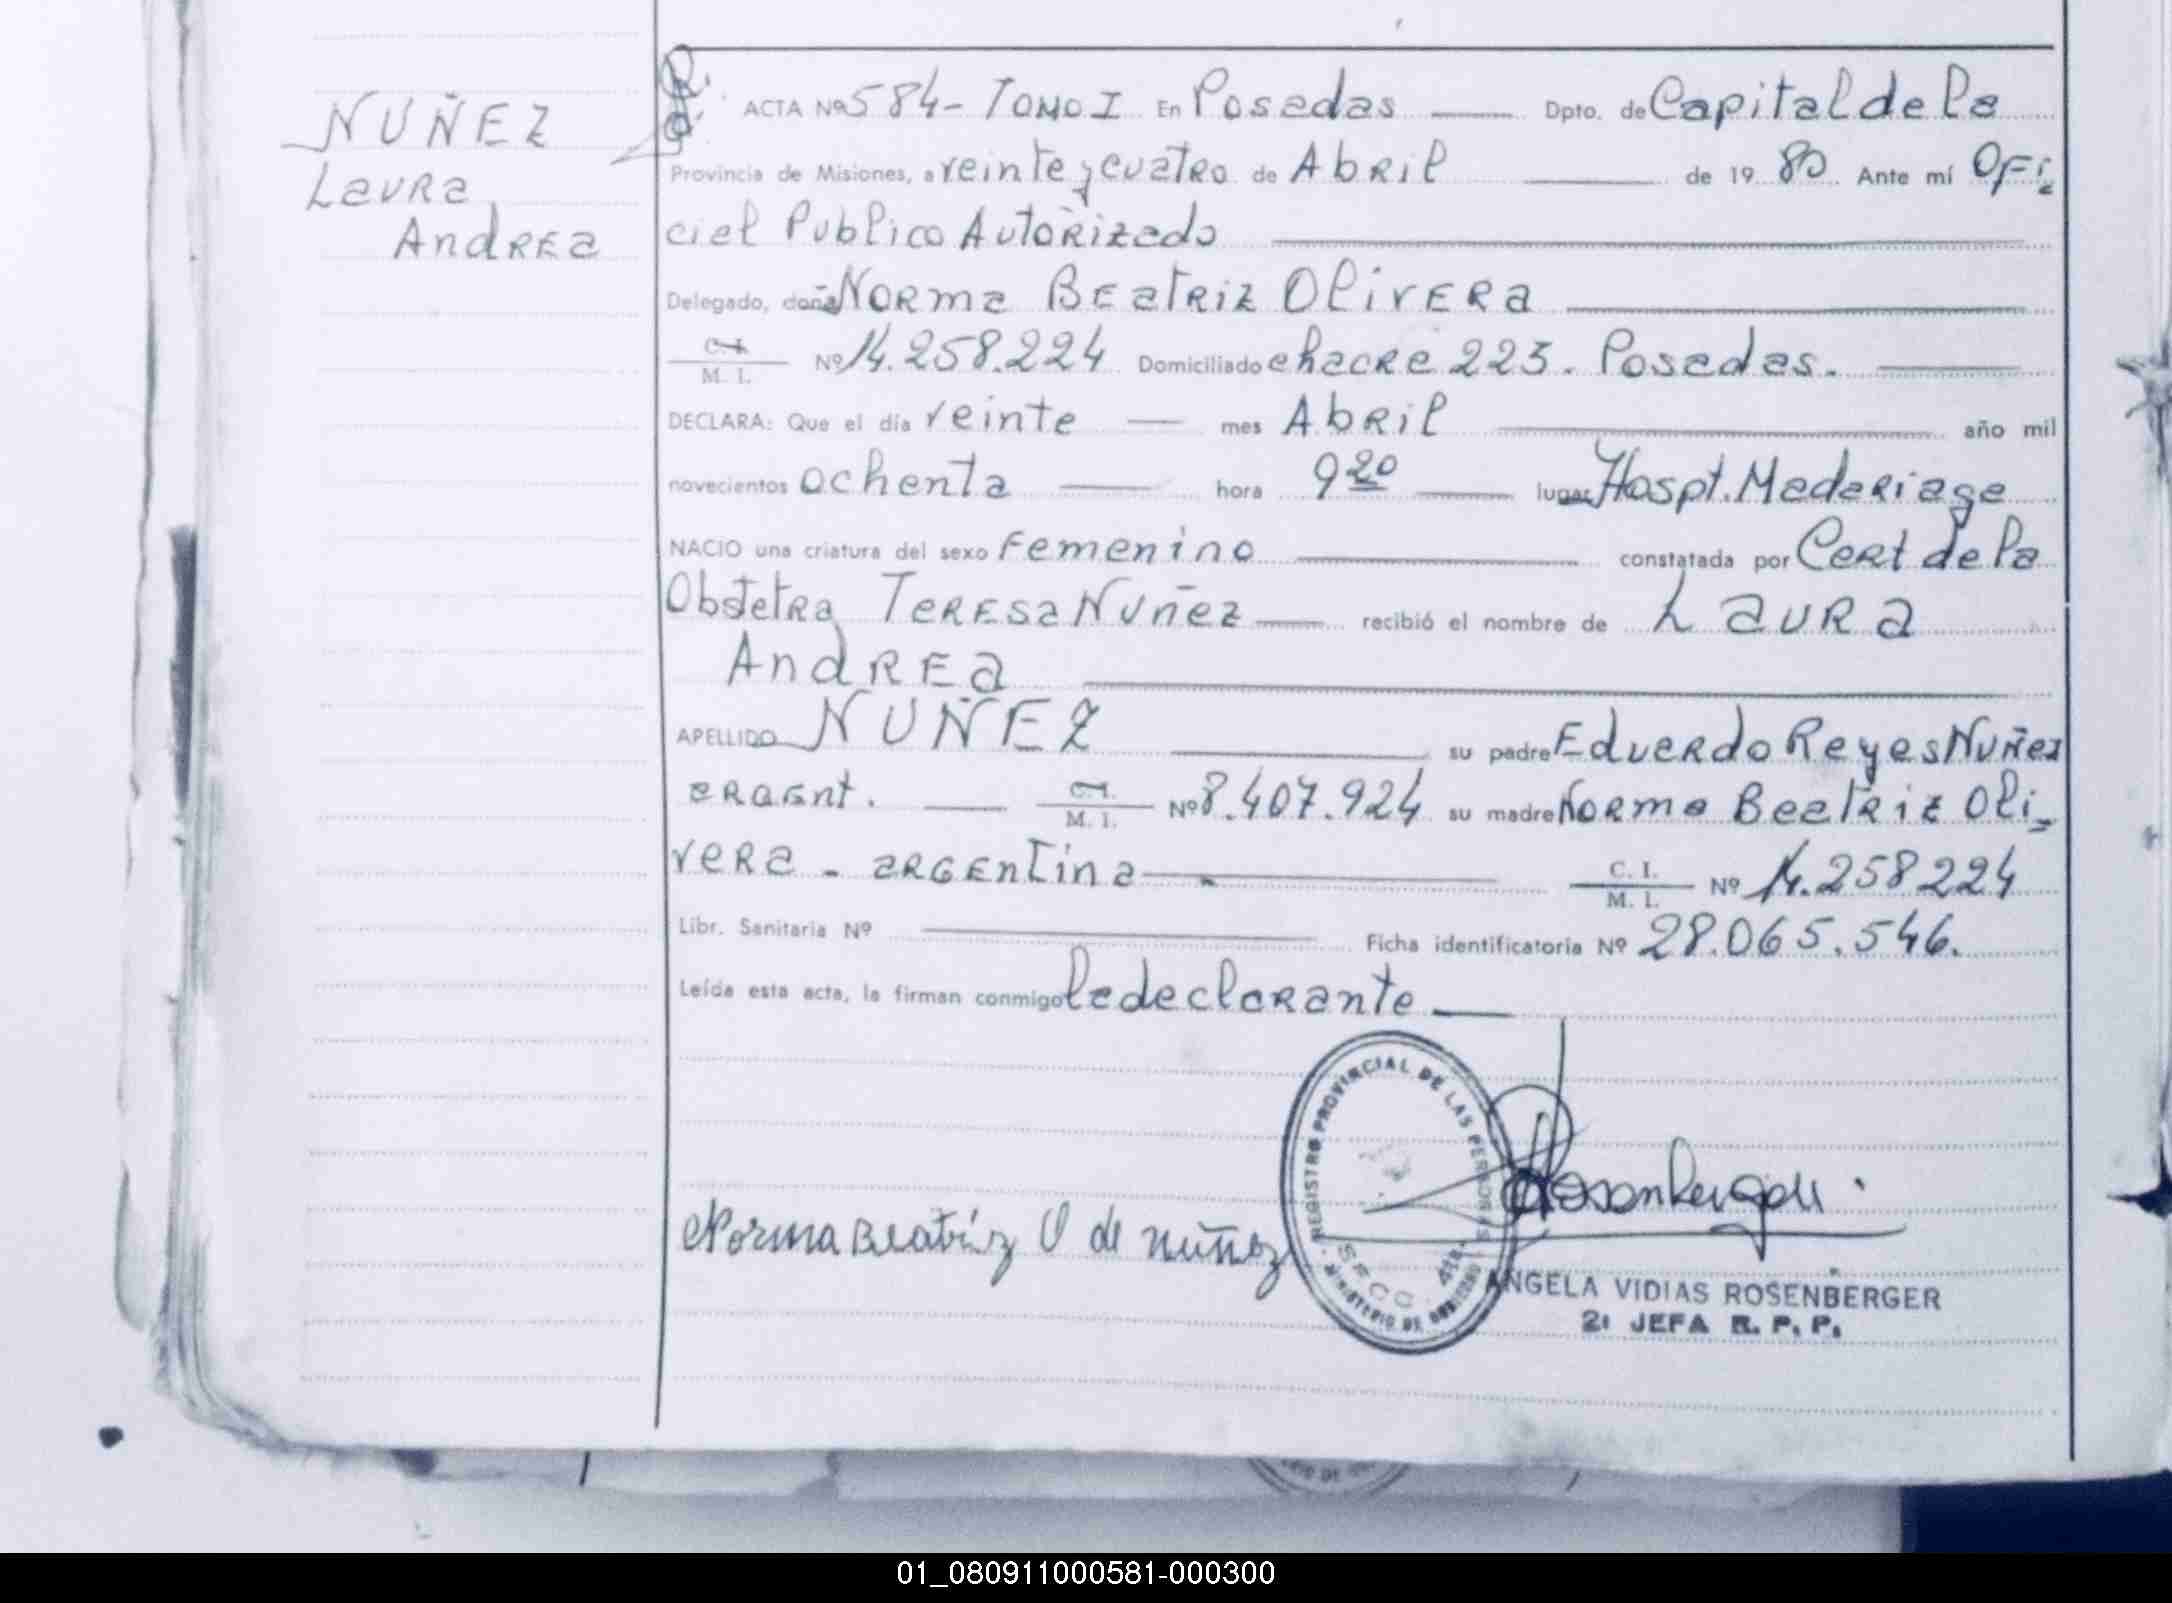 NUÑEZ
Laura
Andrea
ACTA Nº 584 - TOMO I En Posadas Dpto. de Capital de la
Provincia de Misiones, a veinte y cuatro de Abril de 1980 Ante mí Ofi
cial Publico Autorizado
Delegado, doña Norma Beatriz Olivera
C. I. / M. I. Nº 14.258.224 Domiciliado chacra 223. Posadas.
DECLARA: Que el día veinte mes Abril año mil
novecientos ochenta hora 9 20 lugar Hospt. Madariaga
NACIO una criatura del sexo Femenino constatada por Cert de la
Obstetra Teresa Nuñez recibió el nombre de Laura
Andrea
APELLIDO NUÑEZ su padre Eduardo Reyes Nuñez
argent. C. I. / M. I. Nº 8.407.924 su madre Norma Beatriz Oli-
vera - argentina C. I. / M. I. Nº 14.258224
Libr. Sanitaria Nº Ficha identificatoria Nº 28.065.546.
Leída esta acta, la firman conmigo la declarante
REGISTRO PROVINCIAL DE LAS PERSONAS
MINISTERIO DE GOBIERNO
SECC. 4ta.
Norma Beatríz O de Nuñez
Rosenberger
ANGELA VIDIAS ROSENBERGER
2ı JEFA R. P. P.
01_080911000581-000300